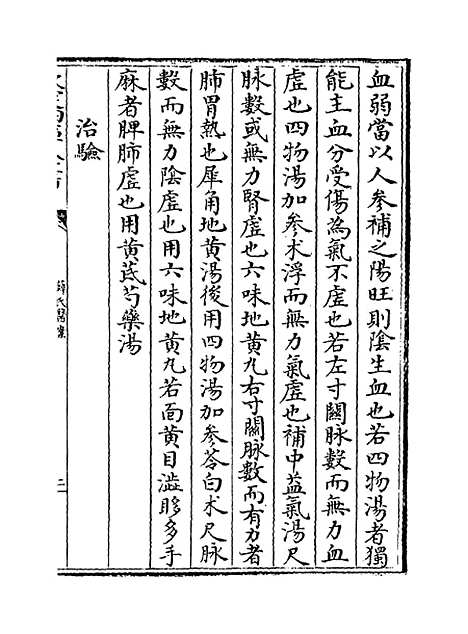 血弱當以人參補之陽旺則陰生血也若四物湯者獨
能主血分受傷為氣不虛也若左寸關脉數而無力血
虛也四物湯加參术浮而無力氣虛也補中益氣湯尺
脉數或無力腎虛也六味地黄九右寸關脉數而有力者
肺胃熱也犀角地黄湯後用四物湯加參苓白术尺脉
數而無力陰虛也用六味地黄丸若面黄目澁眵多手
麻者脾肺虛也用黄芪芍藥湯
治驗
薛氏醫案
二